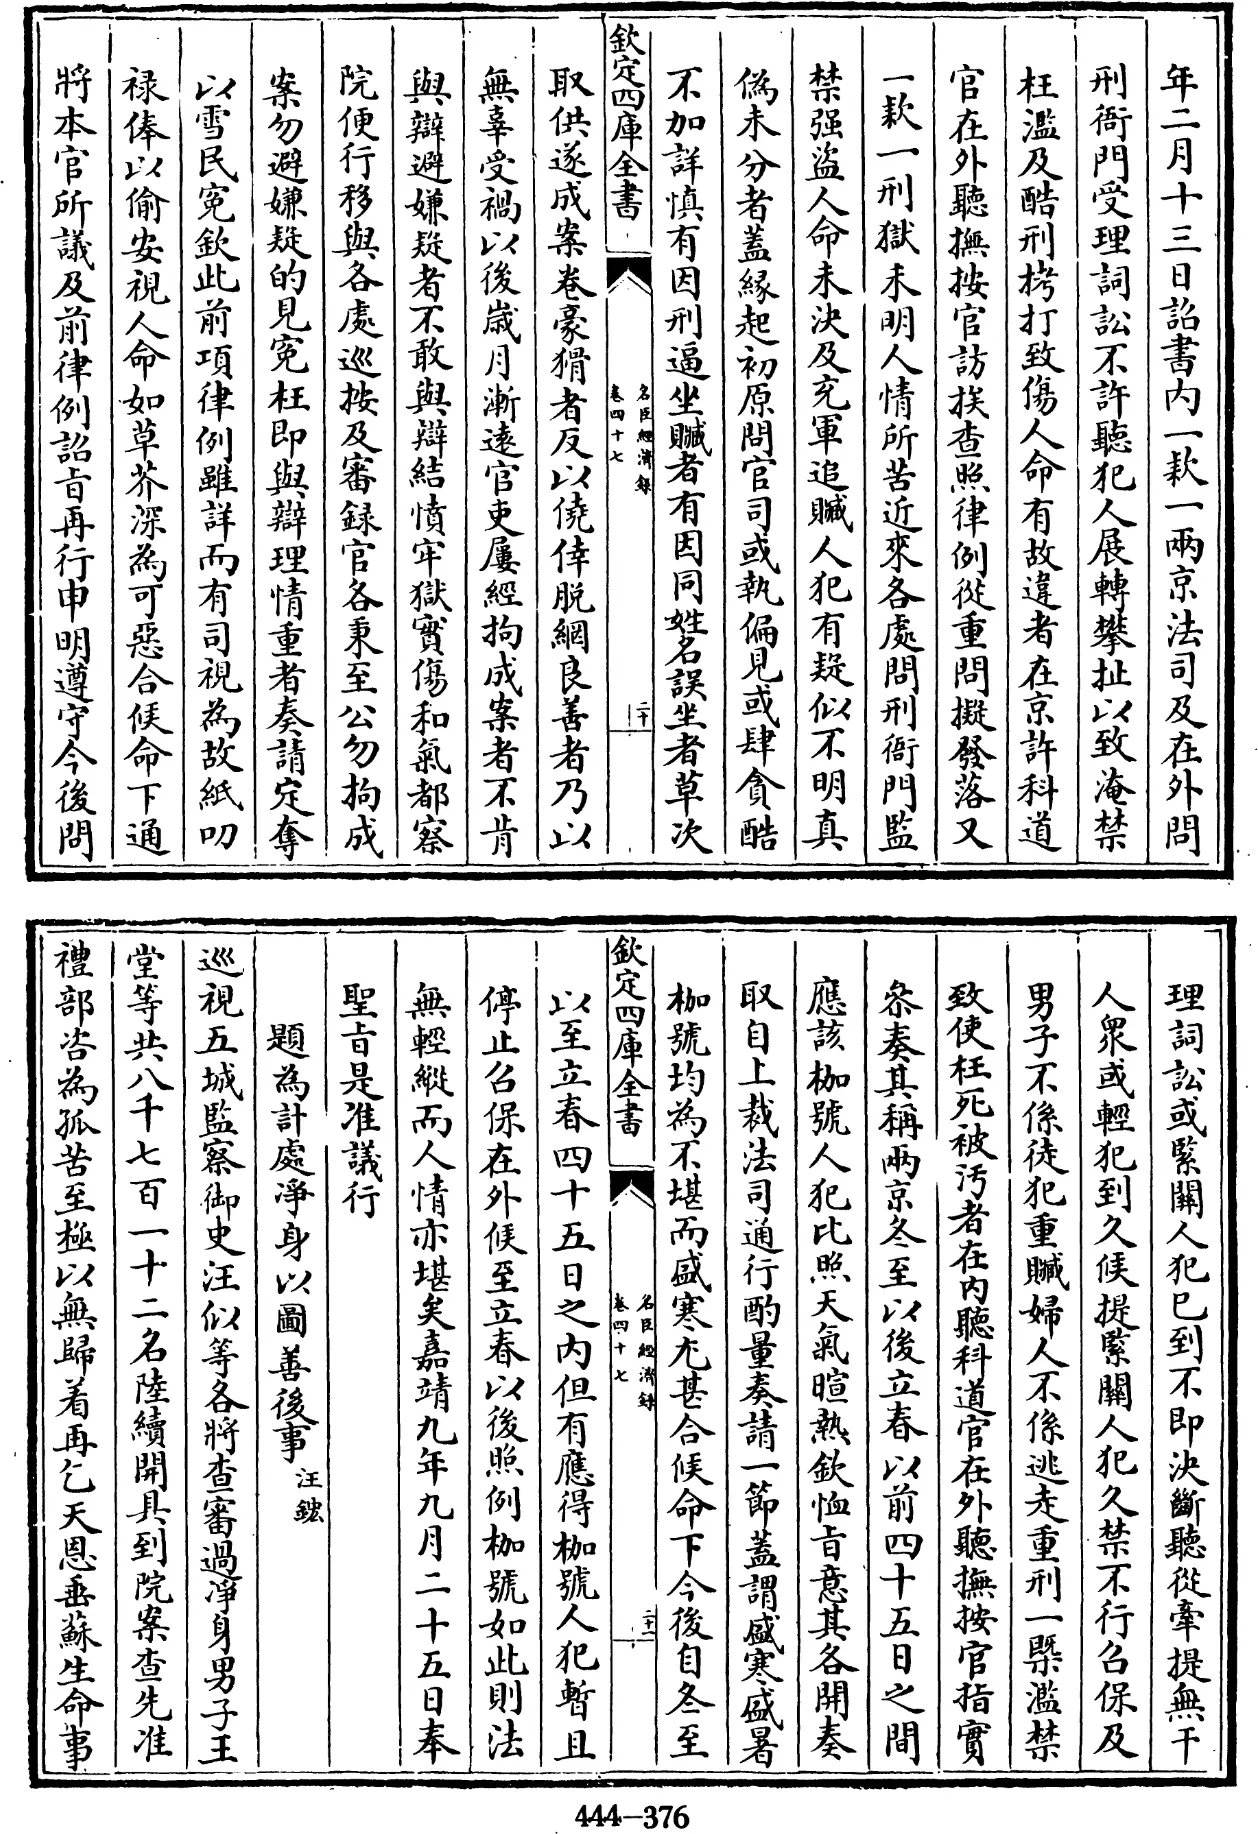 年二月十三日詔書内一款一兩京法司及在外問
刑衙門受理詞訟不許聽犯人展轉攀扯以致淹禁
枉濫及酷刑拷打致傷人命有故違者在京許科道
官在外聽撫按官訪挨查照律例從重問擬發落又
一款一刑獄未明人情所苦近來各處問刑衙門監
禁强盗人命未決及充軍追贓人犯有疑似不明真
偽未分者蓋緣起初原問官司或執偏見或肆貪酷
不加詳慎有因刑逼坐贓者有因同姓名誤坐者草次
欽定四庫全書
名臣經濟録
卷四十七
二十
取供遂成案卷豪猾者反以僥倖脱網良善者乃以
無辜受禍以後歲月漸遠官吏屢經拘成案者不肯
與辯避嫌疑者不敢與辯結憤牢獄實傷和氣都察
院便行移與各處巡按及審録官各秉至公勿拘成
案勿避嫌疑的見寃枉即與辯理情重者奏請定奪
以雪民寃欽此前項律例雖詳而有司視為故紙叨
禄俸以偷安視人命如草芥深為可惡合候命下通
將本官所議及前律例詔旨再行申明遵守今後問
理詞訟或緊關人犯已到不即決斷聽從牽提無干
人衆或輕犯到久候提緊關人犯久禁不行召保及
男子不係徒犯重贓婦人不係逃走重刑一槩濫禁
致使枉死被汚者在内聽科道官在外聽撫按官指實
叅奏其稱兩京冬至以後立春以前四十五日之間
應該枷號人犯比照天氣暄熱欽恤旨意其各開奏
取自上裁法司通行酌量奏請一節蓋謂盛寒盛暑
枷號均為不堪而盛寒尤甚合候命下今後自冬至
欽定四庫全書
名臣經濟録
卷四十七
二十一
以至立春四十五日之内但有應得枷號人犯暫且
停止召保在外候至立春以後照例枷號如此則法
無輕縱而人情亦堪矣嘉靖九年九月二十五日奉
聖旨是准議行
題為計處淨身以圖善後事 汪鋐
巡視五城監察御史汪似等各將查審過淨身男子王
堂等共八千七百一十二名陸續開具到院案查先准
禮部咨為孤苦至極以無歸着再乞天恩垂蘇生命事
444-376